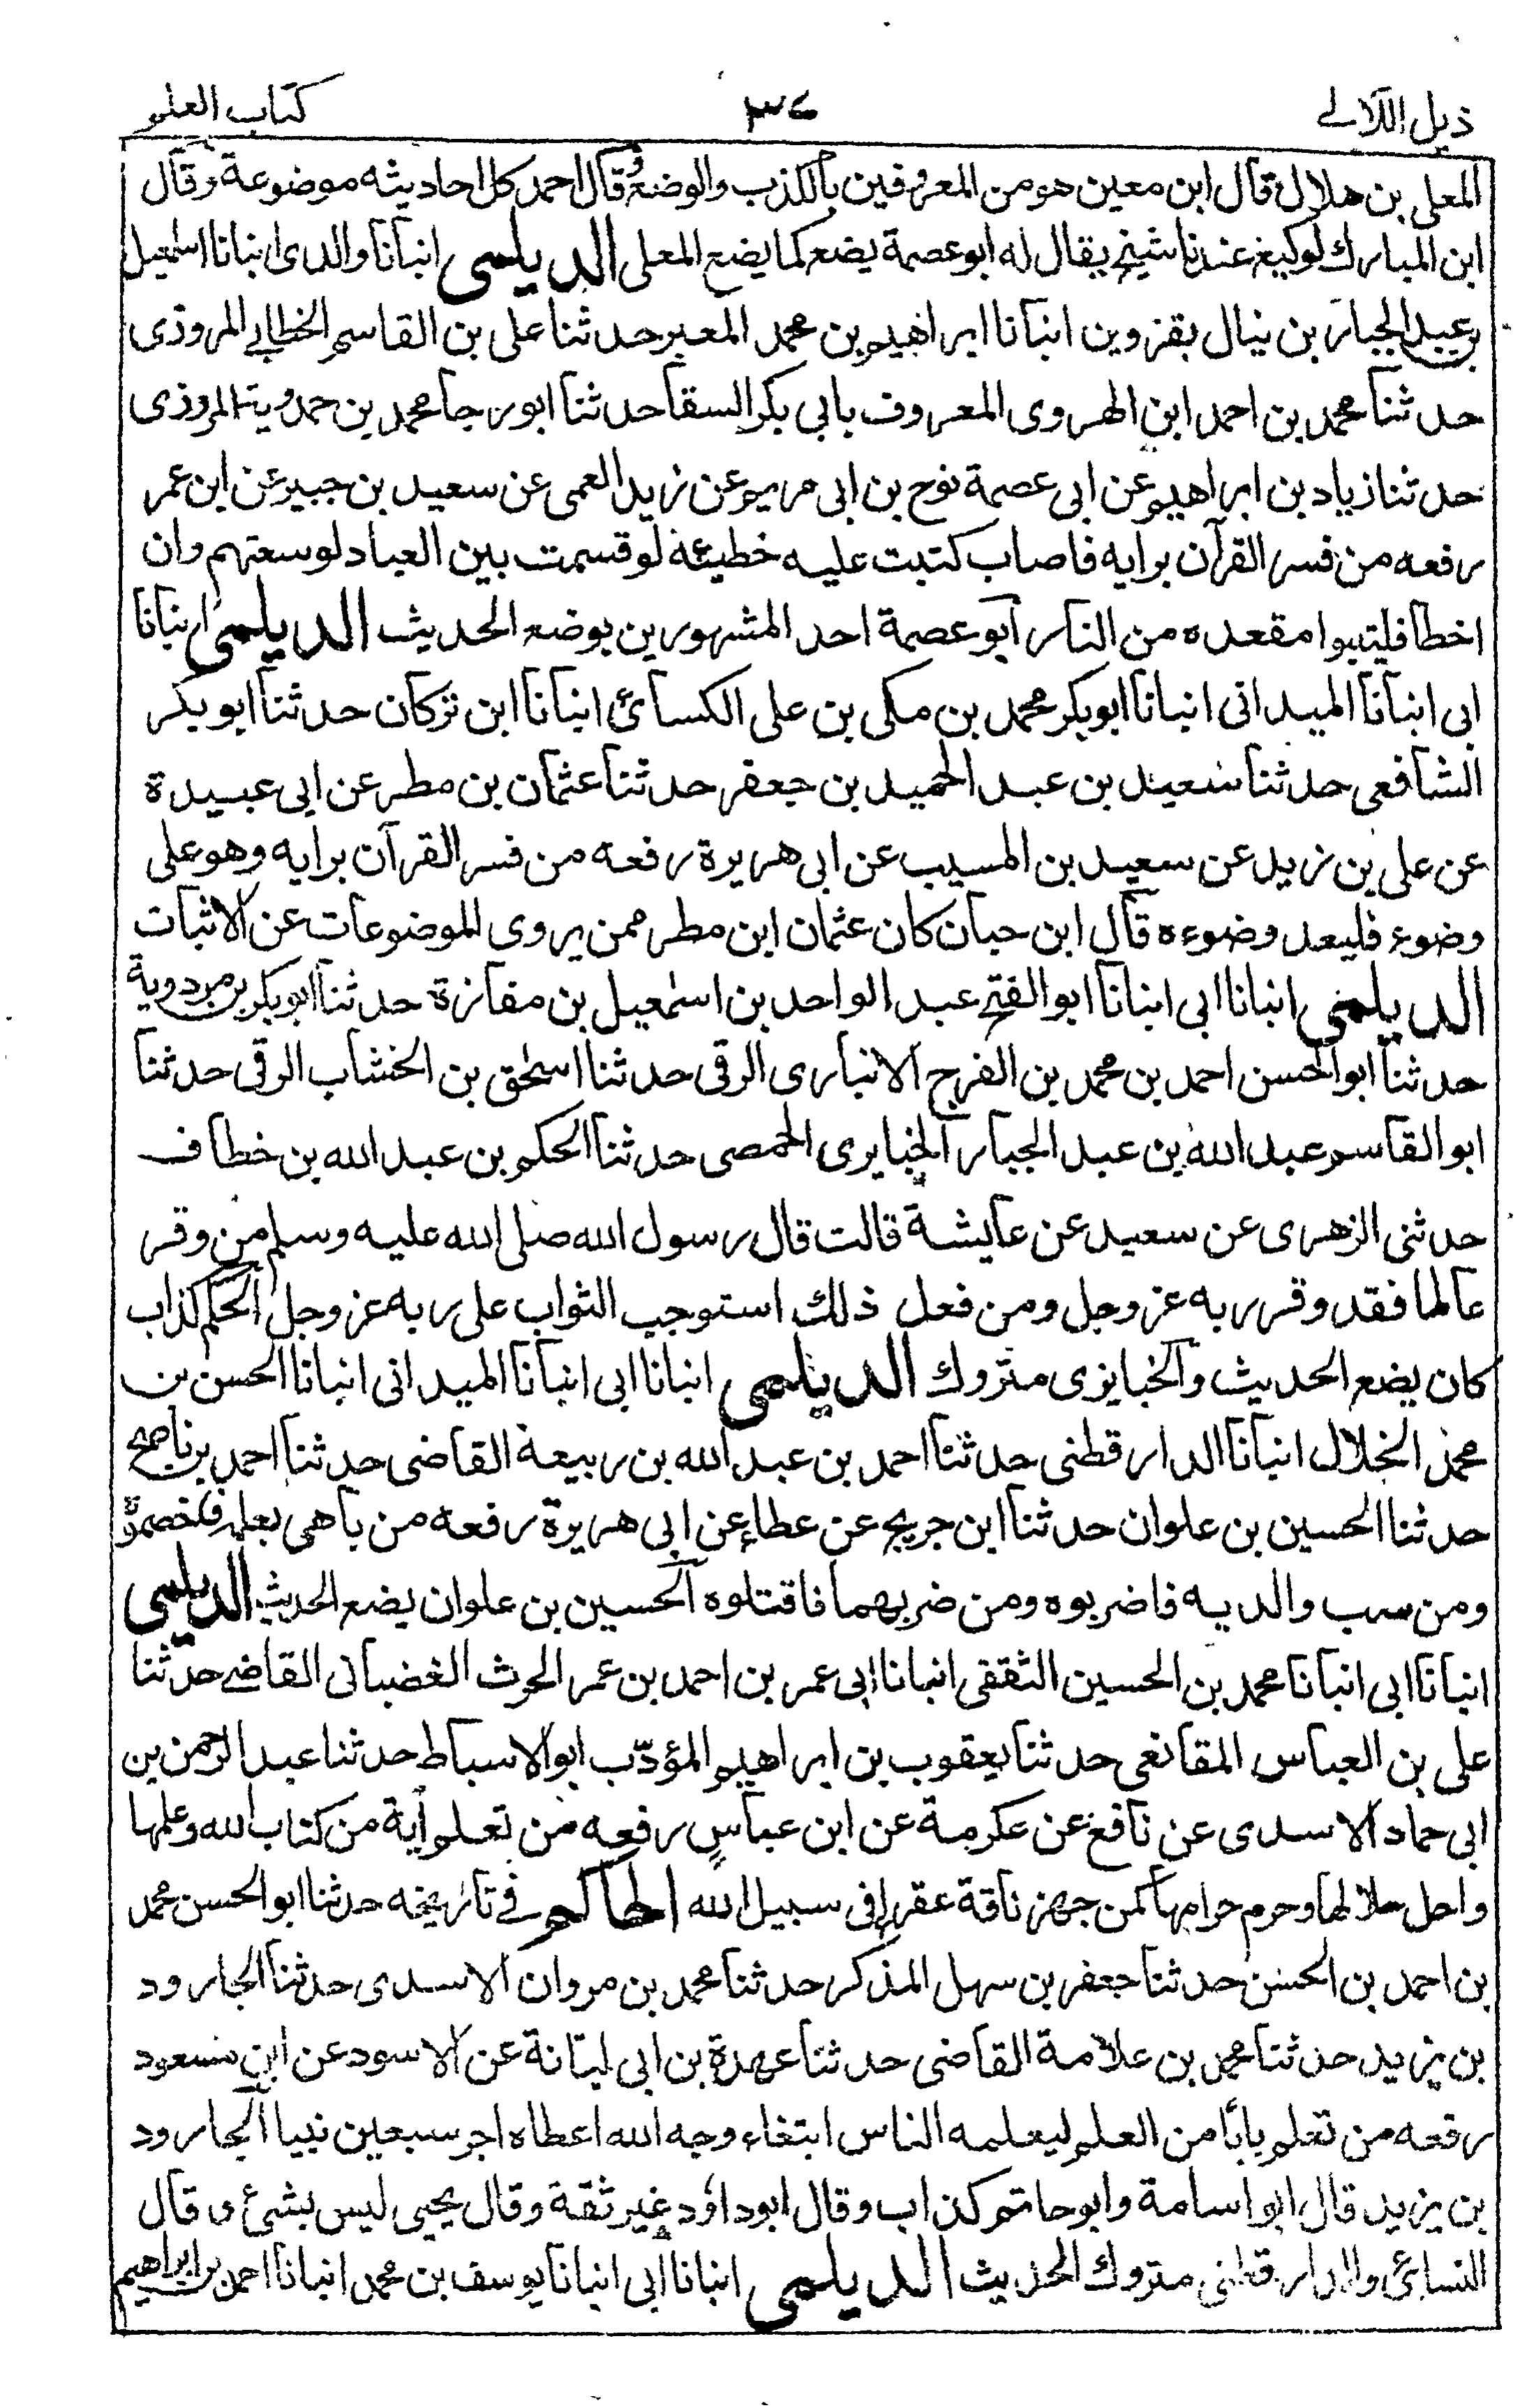 ذيل اللآلي ٣٧ كتاب العلم
المعلى بن هلال قال ابن معين هو من المعروفين بالكذب والوضع وقال احمد كل احاديثه موضوعة وقال
ابن المبارك لوكيع عندنا شيخ يقال له ابو عصمة يضع كما يضع المعلى الديلمي انبانا والدى انبانا اسمعيل
بن عبد الجبار بن نيال بقزوين انبانا ابراهيم بن محمد المعبر حدثنا على بن القاسم الخطابي المروزى
حدثنا محمد بن احمد ابن الهروى المعروف بابي بكر السقا حدثنا ابو رجا محمد بن حمدوية المروزى
حدثنا زياد بن ابراهيم عن ابى عصمة نوح بن ابى مريم عن زيد العمى عن سعيد بن جبير عن ابن عمر
رفعه من فسر القرآن برايه فاصاب كتبت عليه خطيئة لو قسمت بين العباد لوسعتهم وان
اخطا فليتبوا مقعده من النار ابو عصمة احد المشهورين بوضع الحديث الديلمي انبانا
ابى انبانا الميدانى انبانا ابو بكر محمد بن مكى بن على الكسائ انبانا ابن تركان حدثنا ابو بكر
الشافعى حدثنا سعيد بن عبد الحميد بن جعفر حدثنا عثمان بن مطر عن ابى عبيدة
عن على بن زيد عن سعيد بن المسيب عن ابى هريرة رفعه من فسر القرآن برايه وهو على
وضوء فليعد وضوءه قال ابن حبان كان عثمان ابن مطر ممن يروى الموضوعات عن الاثبات
الديلمى انبانا ابى انبانا ابو الفتح عبد الواحد بن اسمعيل بن مفازة حدثنا ابو بكر بن مردوية
حدثنا ابو الحسن احمد بن محمد بن الفرج الانبارى الرقى حدثنا اسحق بن الخشاب الرقى حدثنا
ابو القاسم عبد الله بن عبد الجبار الخبايرى الحمصى حدثنا الحكم بن عبد الله بن خطاف
حدثنى الزهرى عن سعيد عن عايشة قالت قال رسول الله صلى الله عليه وسلم من وقر
عالما فقد وقر ربه عز وجل ومن فعل ذلك استوجب الثواب على ربه عز وجل الحكم كذاب
كان يضع الحديث والخبايزى متروك الديلمى انبانا ابى انبانا الميدانى انبانا الحسن بن
محمد الخلال انبانا الدارقطنى حدثنا احمد بن عبد الله بن ربيعة القاضى حدثنا احمد بن ناصح
حدثنا الحسين بن علوان حدثنا ابن جريج عن عطاء عن ابى هريرة رفعه من باهى بعلمه
ومن سب والديه فاضربوه ومن ضربهما فاقتلوه الحسين بن علوان يضع الحديث الديلمى
انبانا ابى انبانا محمد بن الحسين الثقفى انبانا ابى عمر بن احمد بن عمر الحرث الغضبانى القاضى حدثنا
على بن العباس المقانعى حدثنا يعقوب بن ابراهيم المؤدّب ابو الاسباط حدثنا عبد الرحمن بن
ابى حماد الاسدى عن نافع عن عكرمة عن ابن عباس رفعه من تعلم آية من كتاب الله وعلمها
واحل حلالها وحرم حرامها كمن جهز ناقة عقرا فى سبيل الله الحاكم في تاريخه حدثنا ابو الحسن محمد
بن احمد بن الحسن حدثنا جعفر بن سهل المذكر حدثنا محمد بن مروان الاسدى حدثنا الجارود
بن يزيد حدثنا محمد بن علامة القاضى حدثنا عبدة بن ابى لبانة عن الاسود عن ابن مسعود
رفعه من تعلم بابا من العلم ليعلمه الناس ابتغاء وجه الله اعطاه اجر سبعين نبيا الجارود
بن يزيد قال ابو اسامة وابو حاتم كذاب وقال ابو داود غير ثقة وقال يحيى ليس بشئ وقال
النسائ والدارقطنى متروك الحديث الديلمى انبانا ابى انبانا يوسف بن محمد انبانا احمد بن ابراهيم